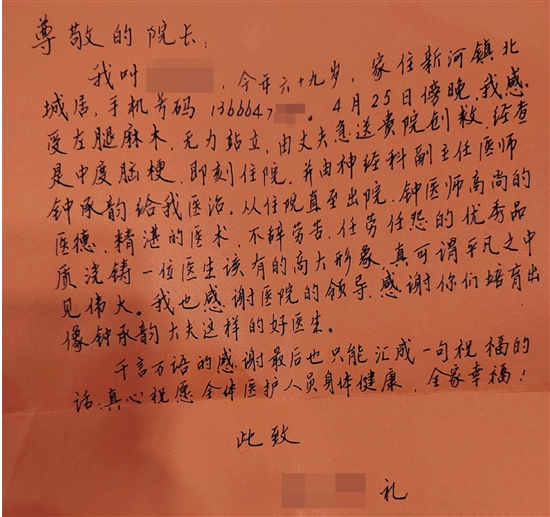 尊敬的院长:
我叫 ,今年六十九岁,家住新河镇北
城居,手机号码1366647 。4月25日傍晚,我感
受左腿麻木,无力站立,由丈夫急送贵院创救,经查
是中度脑梗,即刻住院,并由神经科副主任医师
钟承韵给我医治。从住院直至出院,钟医师高尚的
医德,精湛的医术,不辞劳苦,任劳任怨的优秀品
质浇铸一位医生该有的高大形象,真可谓平凡之中
见伟大。我也感谢医院的领导,感谢你们培育出
像钟承韵大夫这样的好医生。
千言万语的感谢最后也只能汇成一句祝福的
话:真心祝愿全体医护人员身体健康,全家幸福!
此致
礼